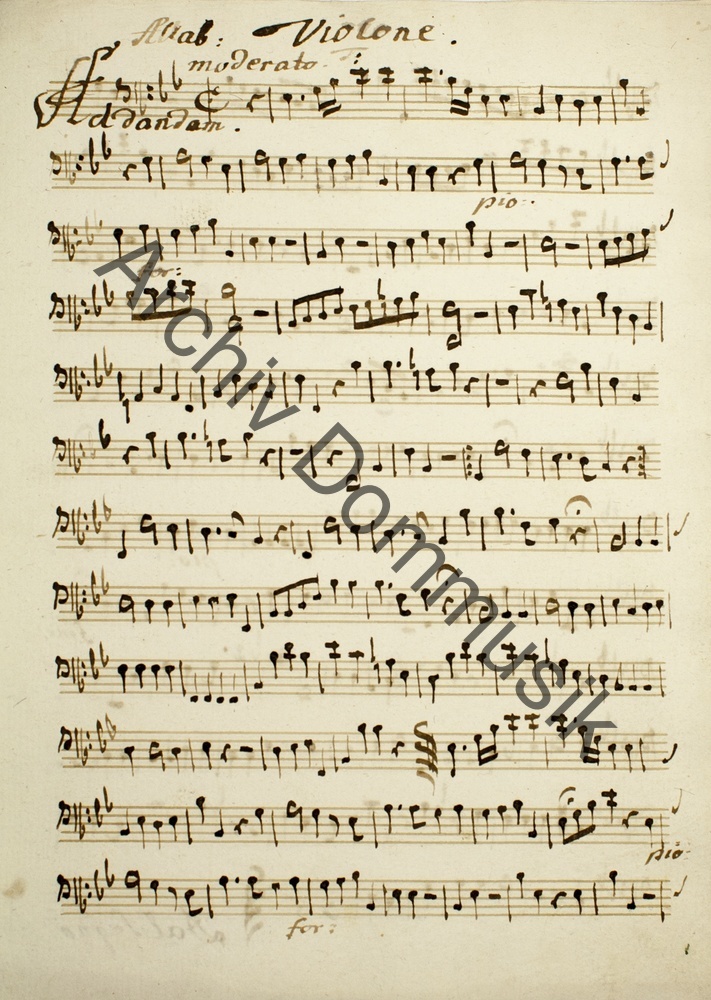 Allab: Violone.
moderato
Addandam.
pio:
for:
pio:
for:
Archiv Dommusik